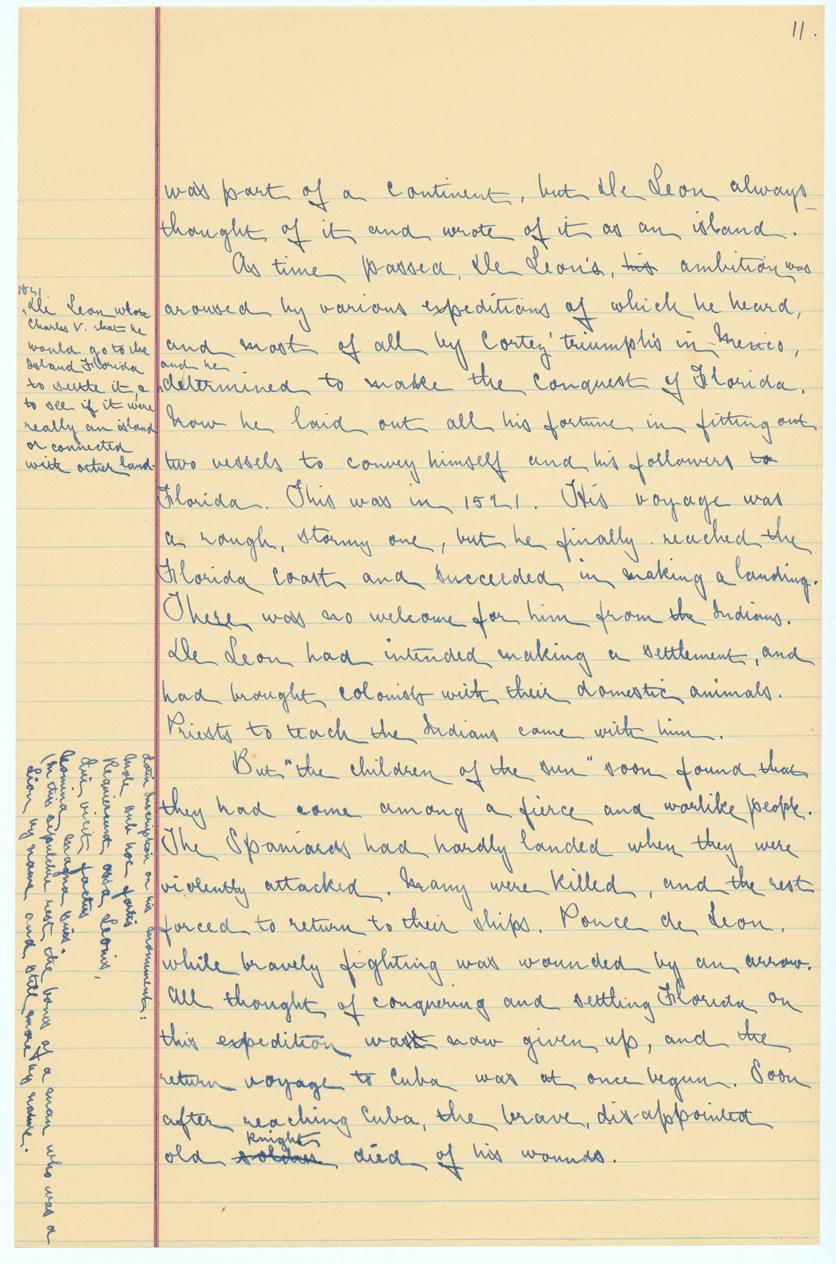 11.
was part of a continent, but De Leon always
thought of it and wrote of it as an island.
As time passed, De Leon's, his ambition was
aroused by various expeditions of which he heard,
and most of all by Cortez' triumphs in Mexico,
and he
determined to make the conquest of Florida.
Now he laid out all his fortune in fitting out
two vessels to convey himself and his followers to
Florida. This was in 1521. His voyage was
a rough, stormy one, but he finally reached the
Florida coast and succeeded in making a landing.
There was no welcome for him from the Indians.
De Leon had intended making a settlement, and
had brought colonists with their domestic animals.
Priests to teach the Indians came with him.
But "the children of the sun" soon found that
they had come among a fierce and warlike people.
The Spaniards had hardly landed when they were
violently attacked. Many were killed, and the rest
forced to return to their ships. Ponce de Leon,
while bravely fighting was wounded by an arrow.
All thought of conquering and settling Florida on
this expedition was now given up, and the
return voyage to Cuba was at once begun. Soon
after reaching Cuba, the brave, dis-appointed
knight
old soldier died of his wounds.
1521
De Leon wrote
Charles V. that he
would go to the
Island Florida
to settle it, &
to see if it were
really an island
or connected
with other land.
Latin Inscription on his monument:
Mole sub hoc fortis
Requiescunt ossa Leonis,
Qui vicit factis
Nomina magna suis.
(In this sepulchre rest the bones of a man who was a
Lion by name and still more by nature.